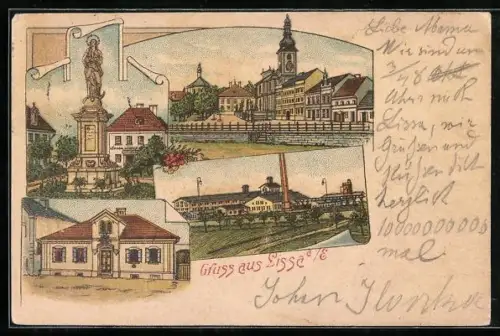 Gruss aus Lissa a/E
Liebe Mama
Wir sind um
3/4 8
Uhr nach
Lissa, wir
Grüßen und
küssen dich
herzlich
10000000000
mal
Johan